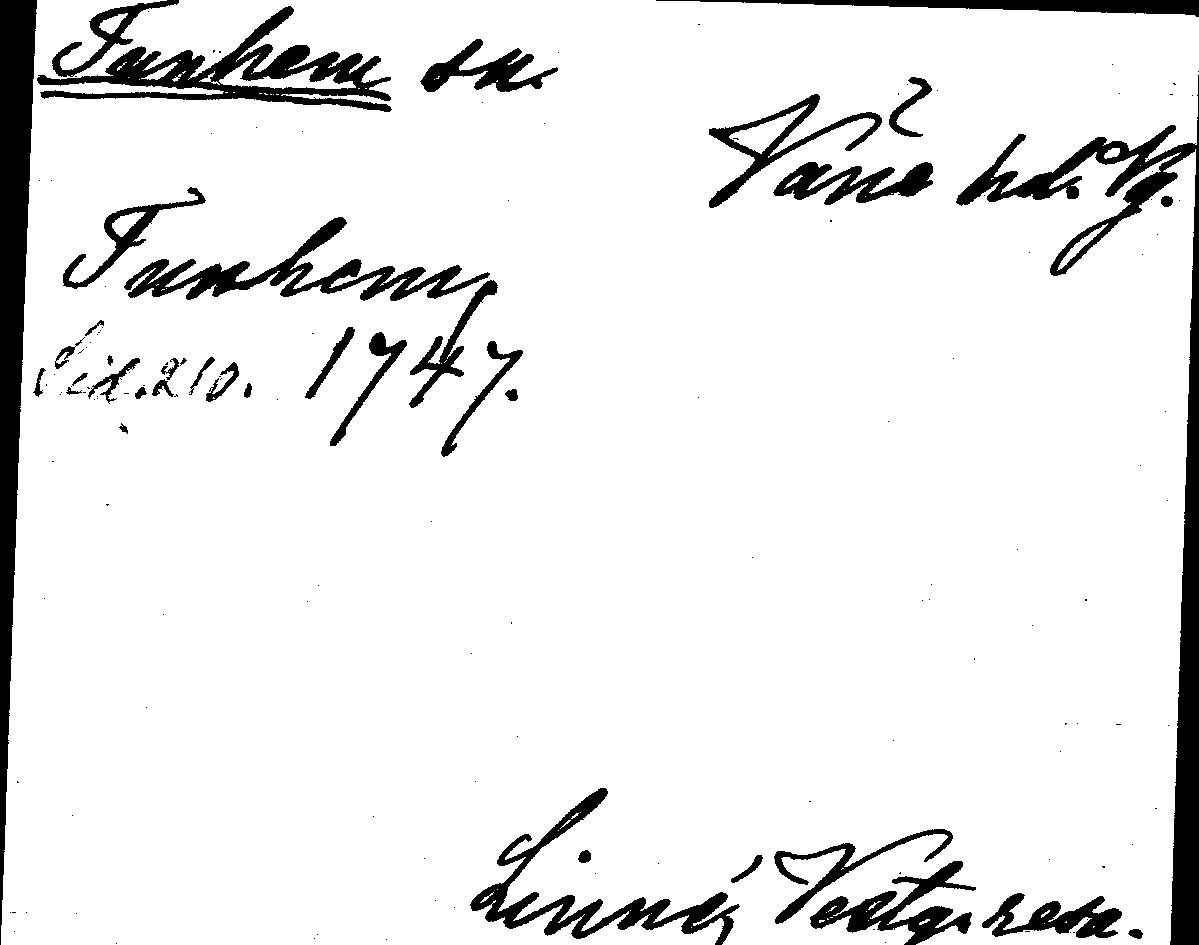 Tunhem sn.
Väne hd. Vg.
Tunhem,
Sid. 210. 1747.
Linné, Västg. resa.